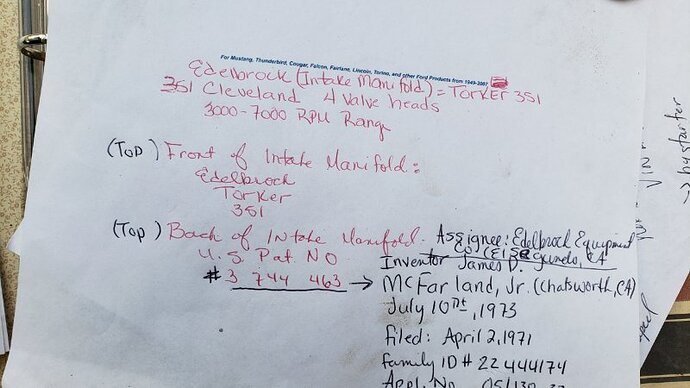 For Mustang, Thunderbird, Cougar, Falcon, Fairlane, Lincoln, Torino, and other Ford Products from 1949-2007
Edelbrock (Intake Manifold) = Torker 351
351 Cleveland 4 Valve heads
3000-7000 RPM Range
(Top) Front of Intake Manifold:
Edelbrock
Torker
351
(Top) Back of Intake Manifold.
U.S Pat. NO
#3 744 463 →
Assignee: Edelbrock Equipment
Co. (El Segundo, CA
Inventor James D.
McFarland, Jr. (Chatsworth, CA)
July 10th, 1973
filed: April 2, 1971
family ID # 22444174
Appl. No.
→ by starter